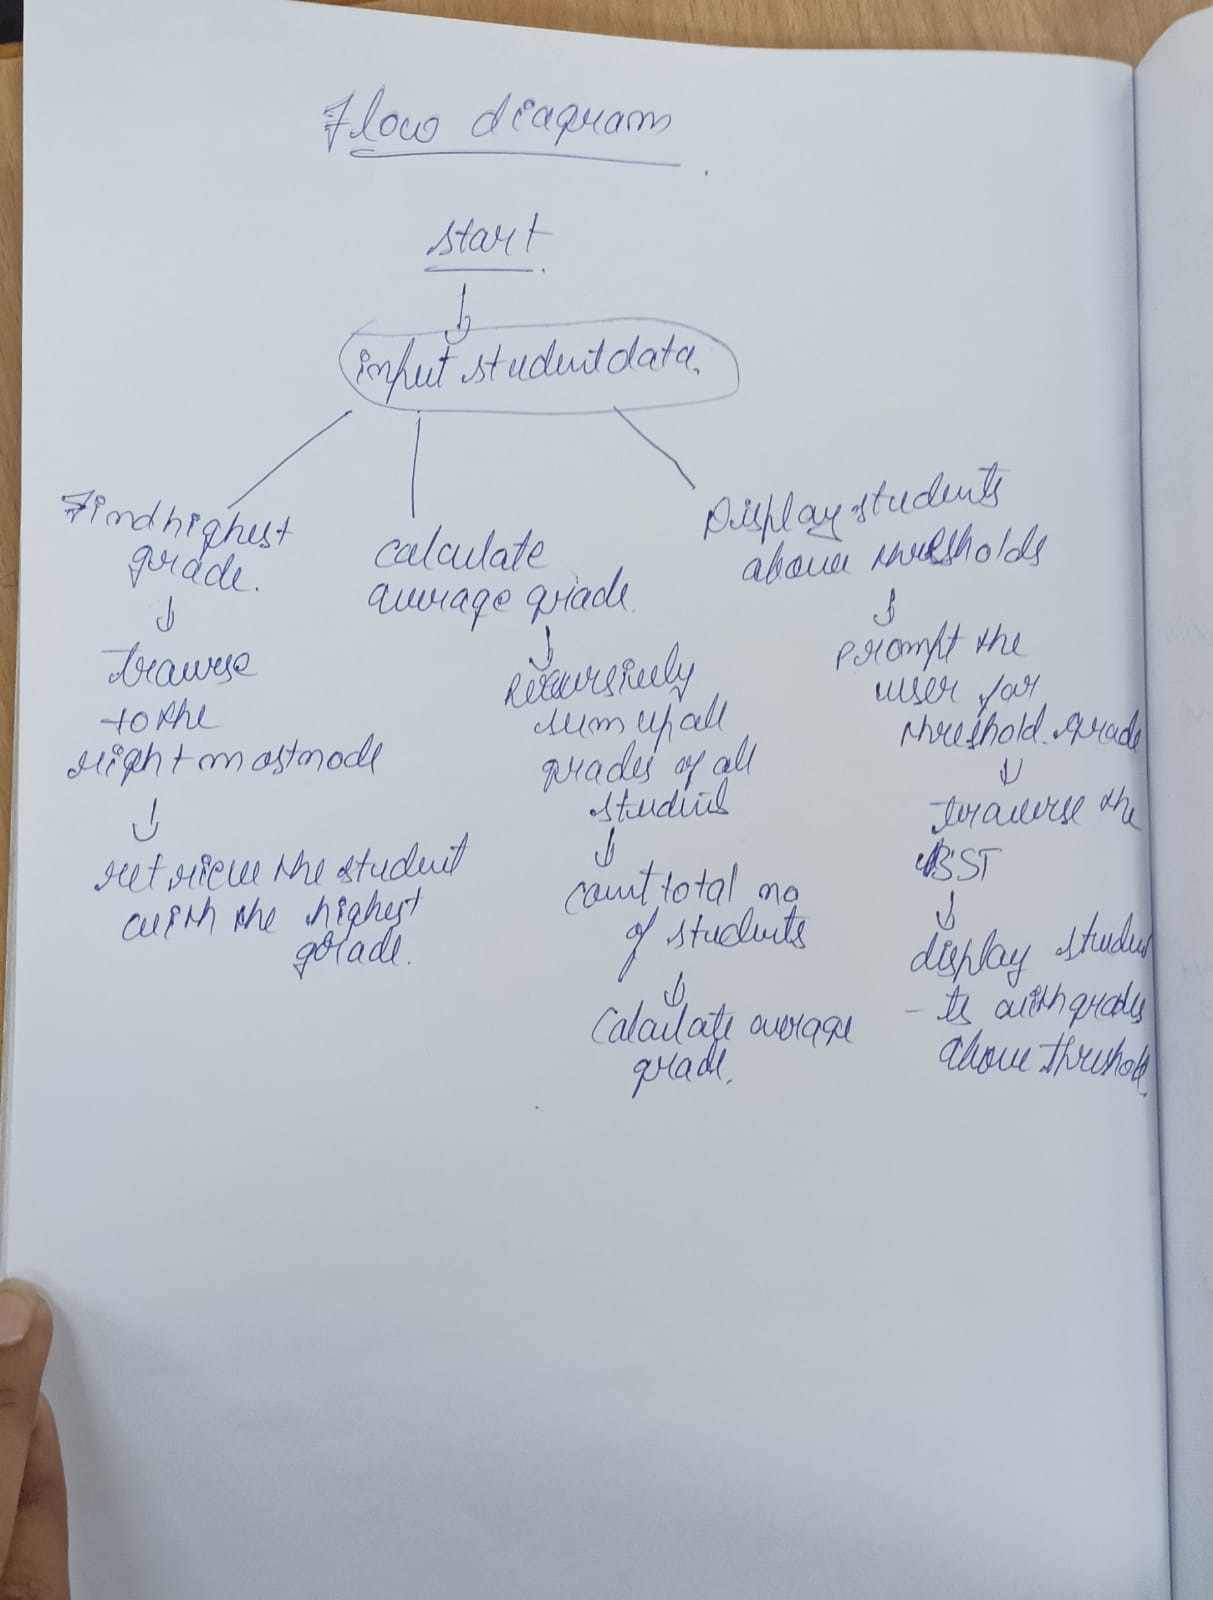 Flow diagram
start
input student data.
Find highest
grade.
traverse
to the
right most node
retrieve the student
with the highest
grade.
calculate
average grade.
Recursively
sum up all
grades of all
students
count total no
of students
Calculate average
grade.
Display students
above thresholds
prompt the
user for
threshold grade
traverse the
BST
display studen
- ts with grades
above threshold.